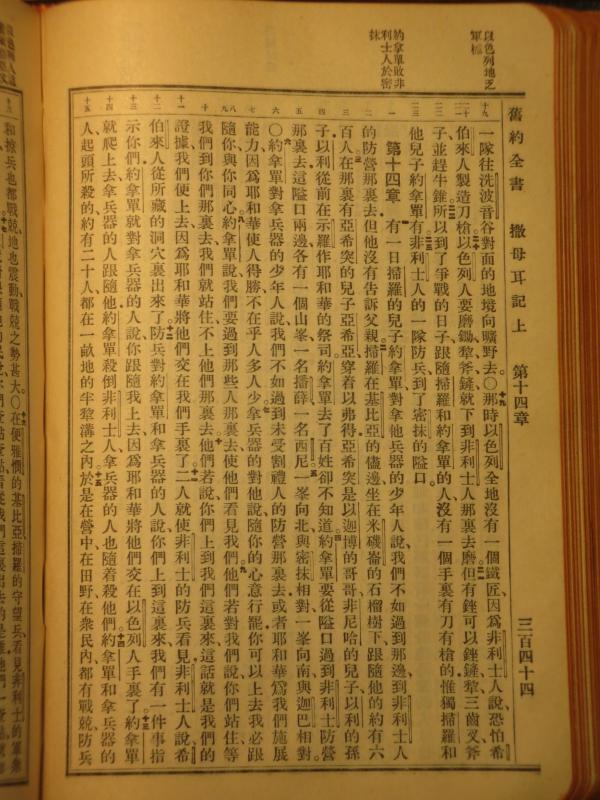 以色列地乏
軍械
約拿單敗非
利士人於密
抹
舊約全書 撒母耳記上 第十四章 三百四十四
一隊往洗波音谷對面的地境向曠野去。○那時以色列全地沒有一個鐵匠、因為非利士人說、恐怕希
伯來人製造刀槍、以色列人要磨鋤犂斧鏟、就下到非利士人那裏去磨、但有銼可以銼鏟犂三齒叉斧
子、並趕牛錐、所以到了爭戰的日子、跟隨掃羅和約拿單的人、沒有一個手裏有刀有槍的、惟獨掃羅和
他兒子約拿單有、非利士人的一隊防兵、到了密抹的隘口。
第十四章 有一日掃羅的兒子約拿單、對拿他兵器的少年人說、我們不如過到那邊、到非利士人
的防營那裏去、但他沒有告訴父親、掃羅在基比亞的儘邊、坐在米磯崙的石榴樹下、跟隨他的約有六
百人、在那裏有亞希突的兒子亞希亞、穿着以弗得、亞希突是以迦博的哥哥、非尼哈的兒子、以利的孫
子、以利從前在示羅作耶和華的祭司、約拿單去了、百姓卻不知道、約拿單要從隘口過到非利士防營
那裏去、這隘口兩邊各有一個山峯、一名播薛、一名西尼、一峯向北與密抹相對、一峯向南與迦巴相對。
○約拿單對拿兵器的少年人說、我們不如過到未受割禮人的防營那裏去、或者耶和華為我們施展
能力、因為耶和華使人得勝、不在乎人多人少、拿兵器的對他說、隨你的心意行罷、你可以上去、我必跟
隨你、與你同心、約拿單說、我們要過到那些人那裏去、使他們看見我們、他們若對我們說、你們站住、等
我們到你們那裏去、我們就站住、不上他們那裏去、他們若說、你們上到我們這裏來、這話就是我們的
證據、我們便上去、因為耶和華將他們交在我們手裏了、二人就使非利士的防兵看見、非利士人說、希
伯來人從所藏的洞穴裏出來了、防兵對約拿單和拿兵器的人說、你們上到這裏來、我們有一件事指
示你們、約拿單就對拿兵器的人說、你跟隨我上去、因為耶和華將他們交在以色列人手裏了、約拿單
就爬上去、拿兵器的人跟隨他、約拿單殺倒非利士人、拿兵器的人也隨着殺他們、約拿單和拿兵器的
人起頭所殺的約有二十人、都在一畝地的半犂溝之內、於是在營中、在田野、在衆民內、都有戰兢、防兵
和掠兵也都戰兢、地也震動、戰兢之勢甚大。○在便雅憫的基比亞、掃羅的守望兵、看見非利士的軍衆